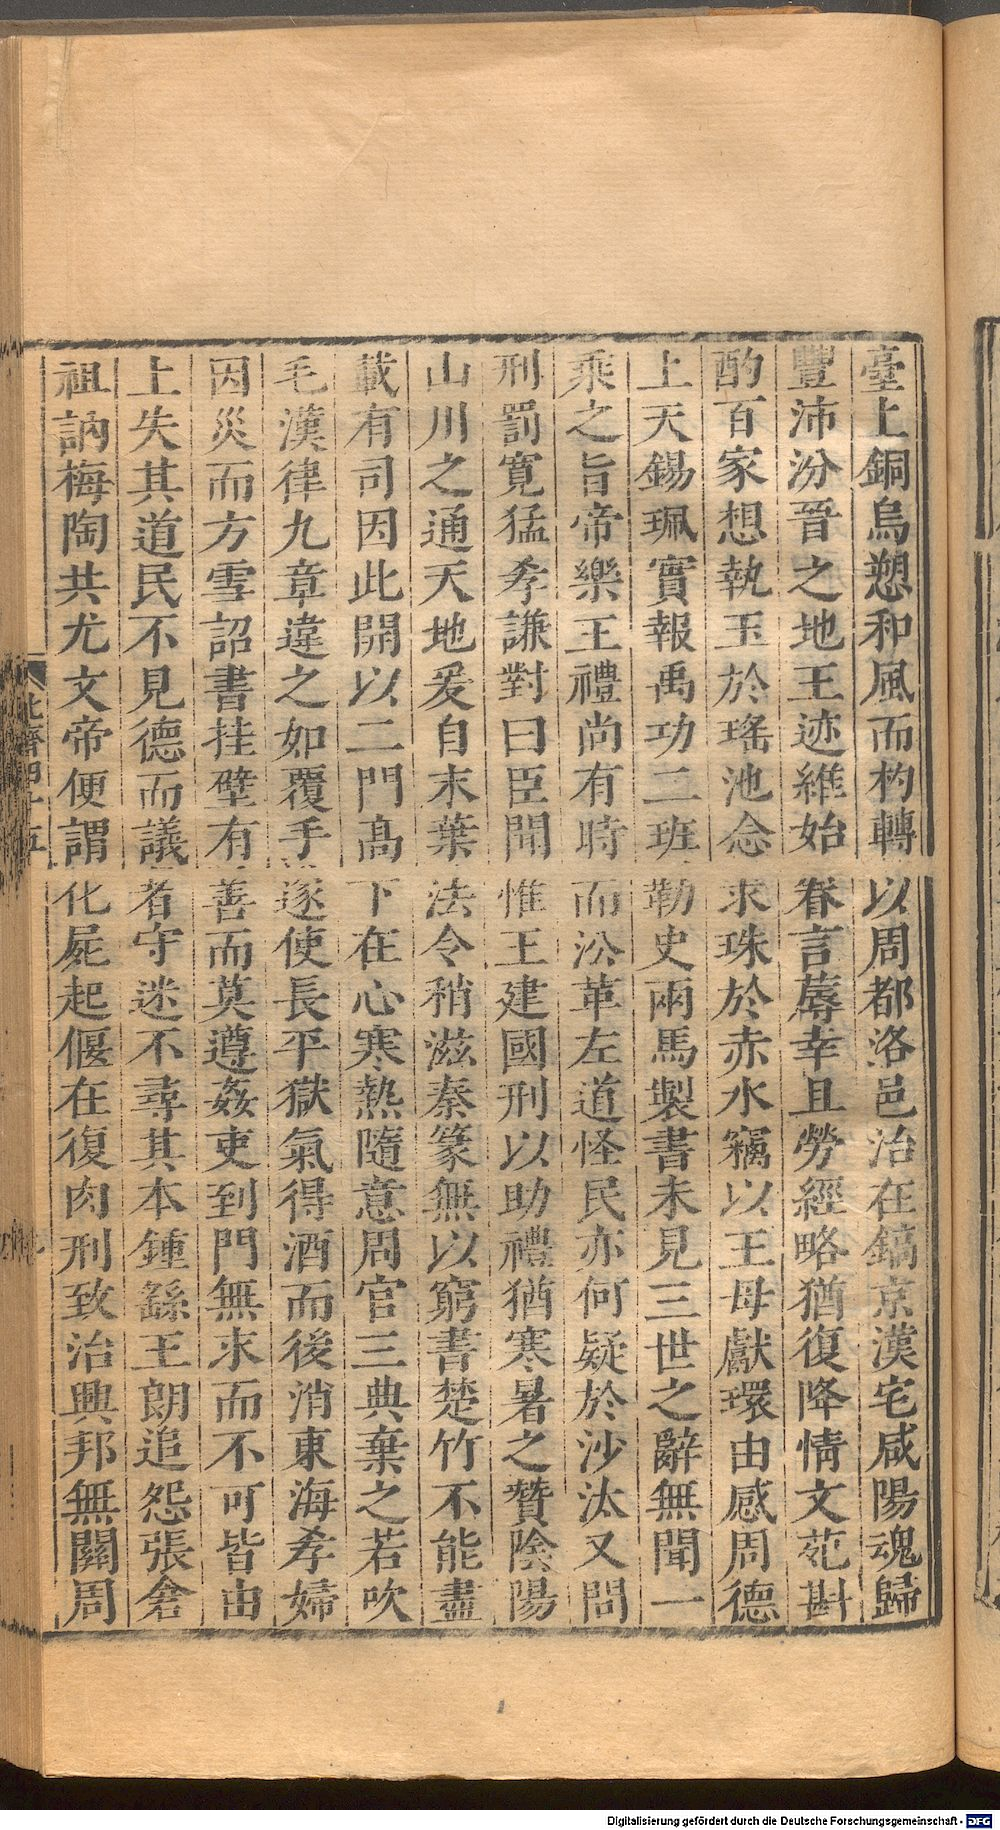 臺上銅烏愬和風而杓轉以周都洛邑治在鎬京漢宅咸陽魂歸
豐沛汾晉之地王迹維始眷言蓐幸且勞經略猶復降情文苑斟
酌百家想執玉於瑤池念求珠於赤水竊以王母獻環由感周德
上天錫珮實報禹功二班勒史兩馬製書未見三世之辭無聞一
乘之旨帝樂王禮尚有時而㳂革左道怪民亦何疑於沙汰又問
刑罰寛猛孝謙對曰臣聞惟王建國刑以助禮猶寒暑之贊陰陽
山川之通天地爰自末葉法令稍滋秦篆無以窮書楚竹不能盡
載有司因此開以二門高下在心寒熱隨意周官三典棄之若吹
毛漢律九章違之如覆手遂使長平獄氣得酒而後消東海孝婦
因災而方雪詔書挂壁有善而莫遵姦吏到門無求而不可皆由
上失其道民不見德而議者守迷不尋其本鍾繇王朗追怨張倉
祖訥梅陶共尤文帝便謂化屍起偃在復肉刑致治興邦無關周
北齊四十五
Digitalisierung gefördert durch die Deutsche Forschungsgemeinschaft - DFG